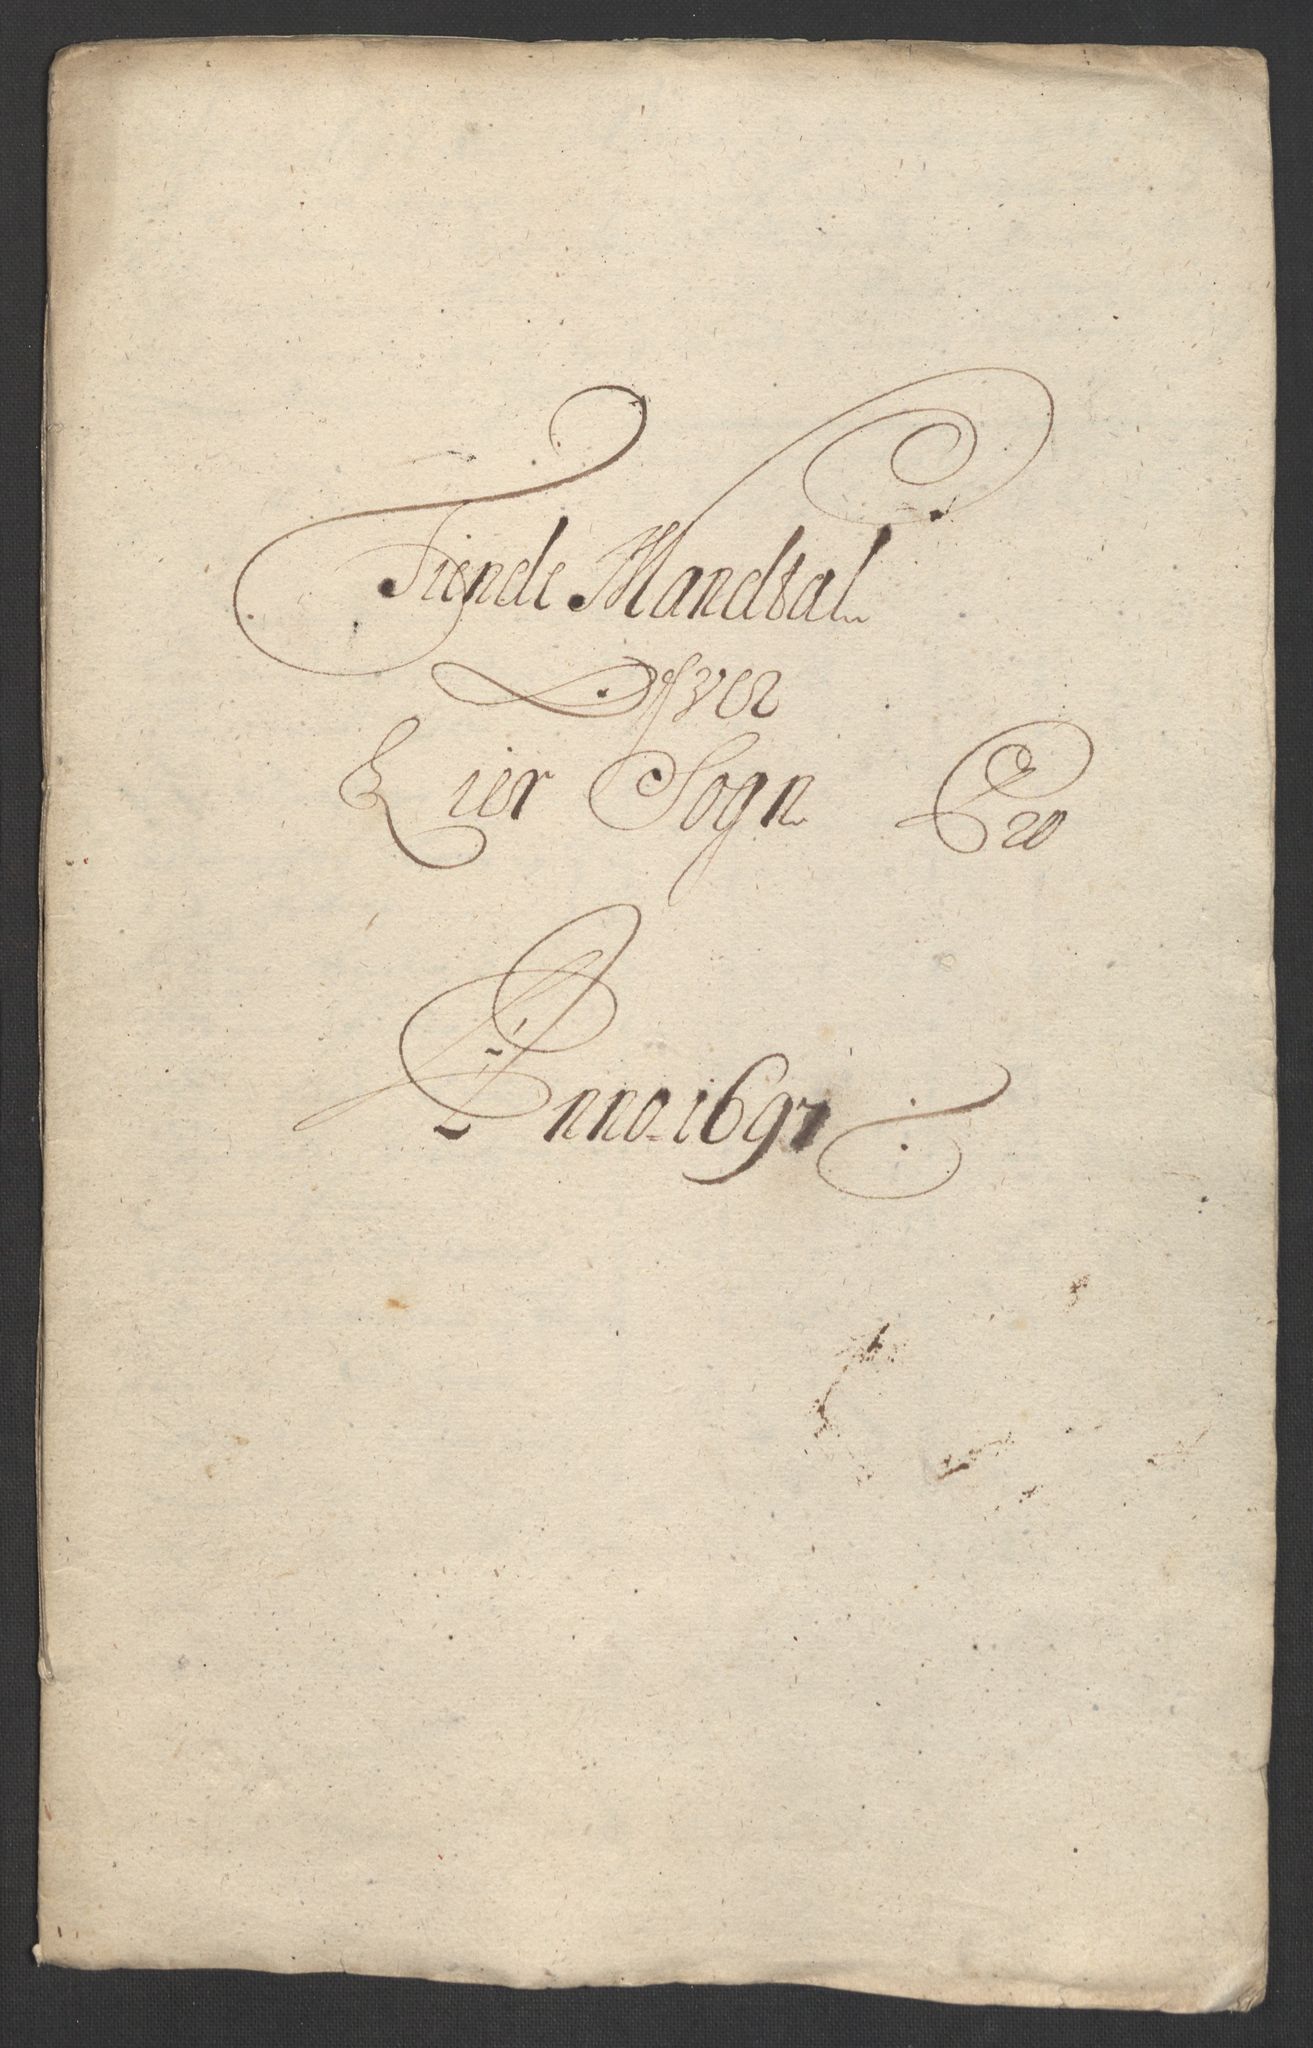 Tiende Mandtal
Ofver
Lier Sogn Pro
Anno 1697